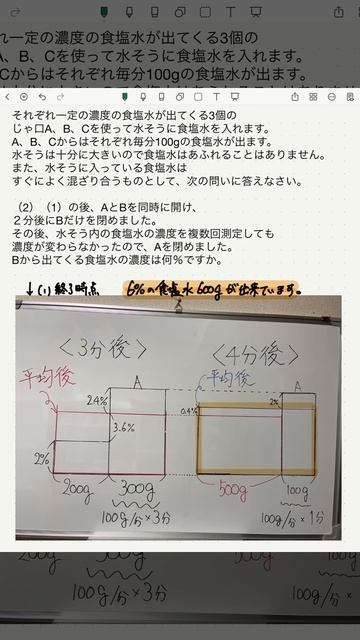 れ一定の濃度の食塩水が出てくる3個の
A、B、Cを使って水そうに食塩水を入れます。
Cからはそれぞれ毎分100gの食塩水が出ます。
それぞれ一定の濃度の食塩水が出てくる3個の
じゃ口A、B、Cを使って水そうに食塩水を入れます。
A、B、Cからはそれぞれ毎分100gの食塩水が出ます。
水そうは十分に大きいので食塩水はあふれることはありません。
また、水そうに入っている食塩水は
すぐによく混ざり合うものとして、次の問いに答えなさい。
（2）（1）の後、AとBを同時に開け、
２分後にBだけを閉めました。
その後、水そう内の食塩水の濃度を複数回測定しても
濃度が変わらなかったので、Aを閉めました。
Bから出てくる食塩水の濃度は何％ですか。
↓(1)終了時点 6%の食塩水600gが出来ています。
<3分後> <4分後>
平均後 A 平均後 A
2.4% 2%
0.4%
3.6%
2%
200g 300g 500g 100g
100g/分×3分 100g/分×1分
200g 300g
100g/分×3分 100g/分×